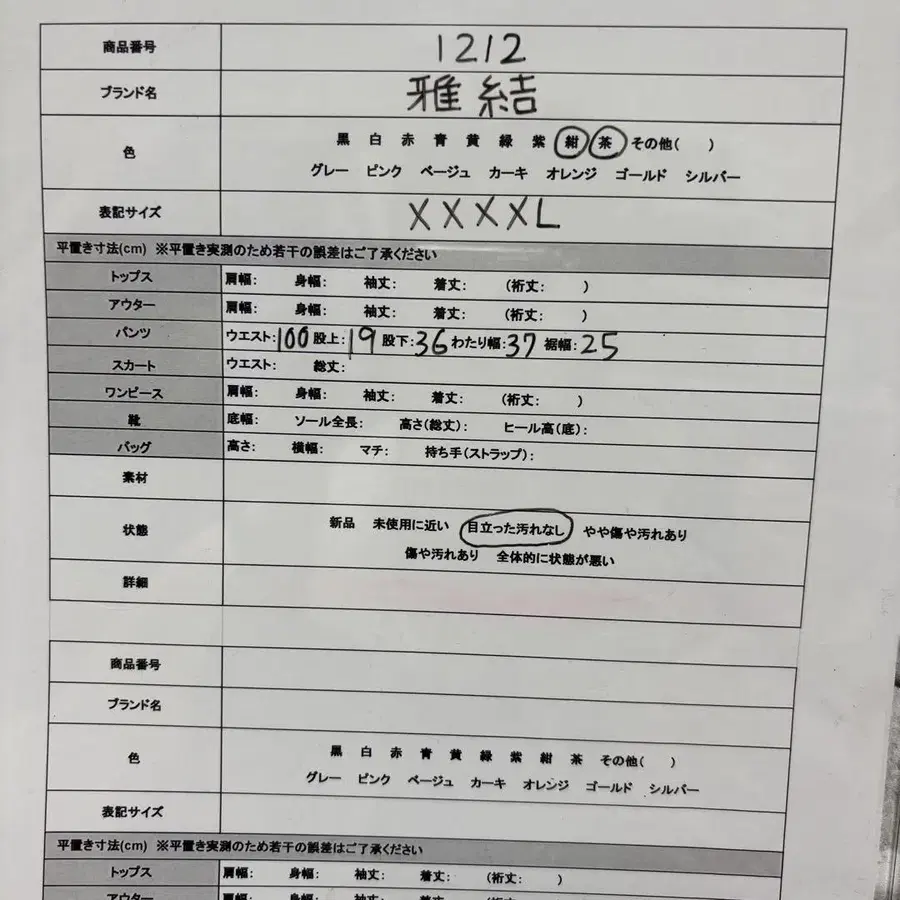 商品番号 1212
ブランド名 雅結
色 黒 白 赤 青 黄 緑 紫 紺 茶 その他( )
グレー ピンク ベージュ カーキ オレンジ ゴールド シルバー
表記サイズ XXXXL
平置き寸法(cm) ※平置き実測のため若干の誤差はご了承ください
トップス 肩幅: 身幅: 袖丈: 着丈: (裄丈: )
アウター 肩幅: 身幅: 袖丈: 着丈: (裄丈: )
パンツ ウエスト:100 股上:19 股下:36 わたり幅:37 裾幅:25
スカート ウエスト: 総丈:
ワンピース 肩幅: 身幅: 袖丈: 着丈: (裄丈: )
靴 底幅: ソール全長: 高さ(総丈): ヒール高(底):
バッグ 高さ: 横幅: マチ: 持ち手(ストラップ):
素材
状態 新品 未使用に近い 目立った汚れなし やや傷や汚れあり
傷や汚れあり 全体的に状態が悪い
詳細
商品番号
ブランド名
色 黒 白 赤 青 黄 緑 紫 紺 茶 その他( )
グレー ピンク ベージュ カーキ オレンジ ゴールド シルバー
表記サイズ
平置き寸法(cm) ※平置き実測のため若干の誤差はご了承ください
トップス 肩幅: 身幅: 袖丈: 着丈: (裄丈: )
アウター 肩幅: 身幅: 袖丈: 着丈: (裄丈: )